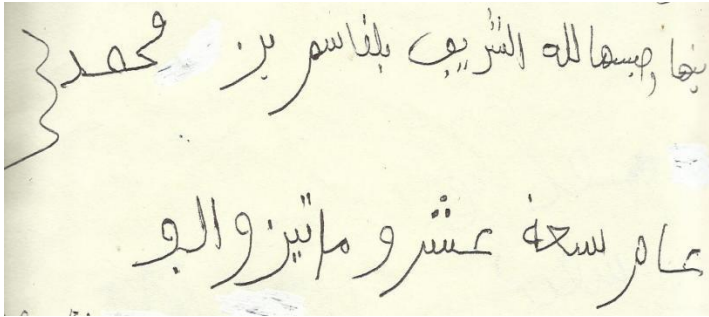 بنها وحبسها لله الشريف بلقاسم بن محمد
عام سعة عشر وماتين والف